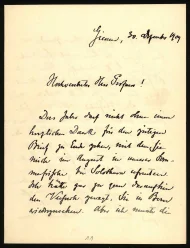 30. Dezember 1909
Hochverehrter Herr Professor!
Das Jahr darf nicht ohne einen
herzlichen Dank für den gütigen
Brief zu Ende gehen, mit dem Sie
mich im August in unserer Som-
in Solothurn erfreuten.
Ich hätte gar zu gern daraufhin
den Versuch gewagt, Sie in Bern
wiederzusehen. Aber ich die